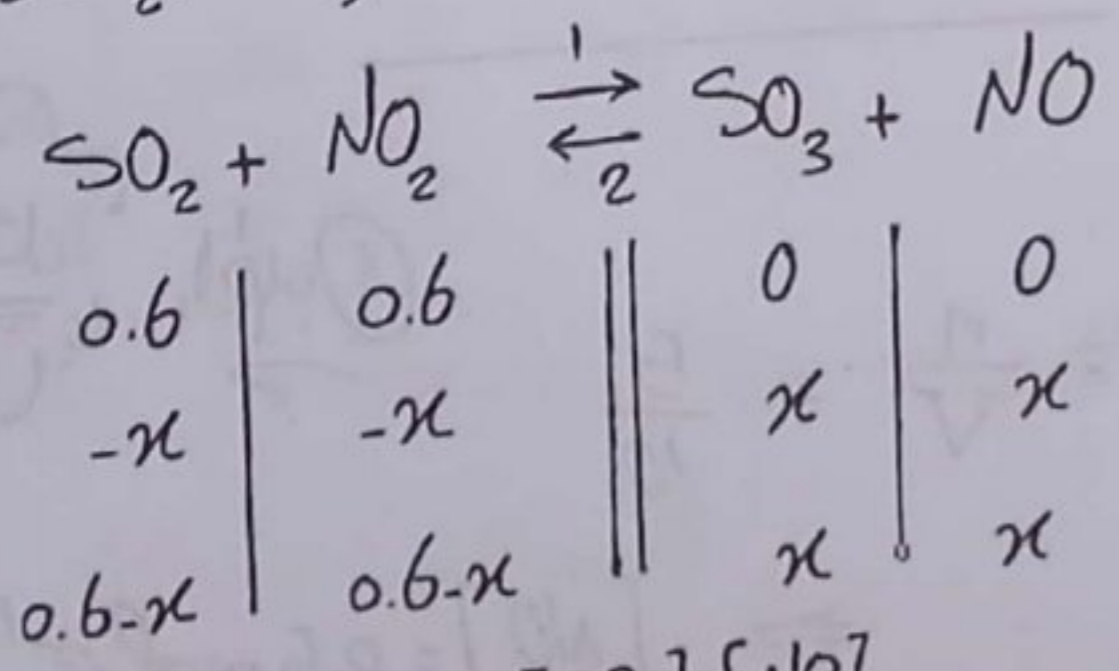 SO₂ + NO₂ 1 ⇄ 2 SO₃ + NO
0.6 | 0.6 || 0 | 0
-x | -x || x | x
0.6-x | 0.6-x || x | x